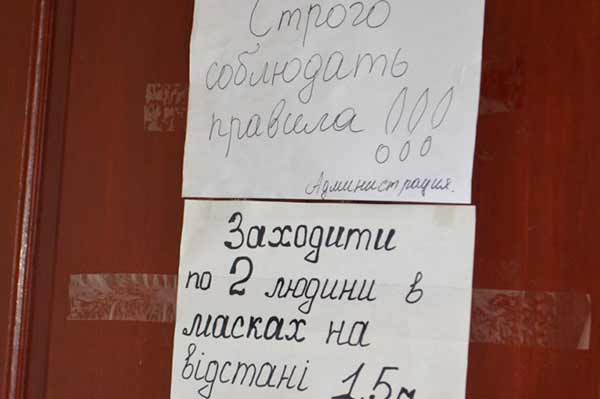 Строго
соблюдать
правила !!!
Администрация.
Заходити
по 2 людини в
масках на
відстані 1,5м